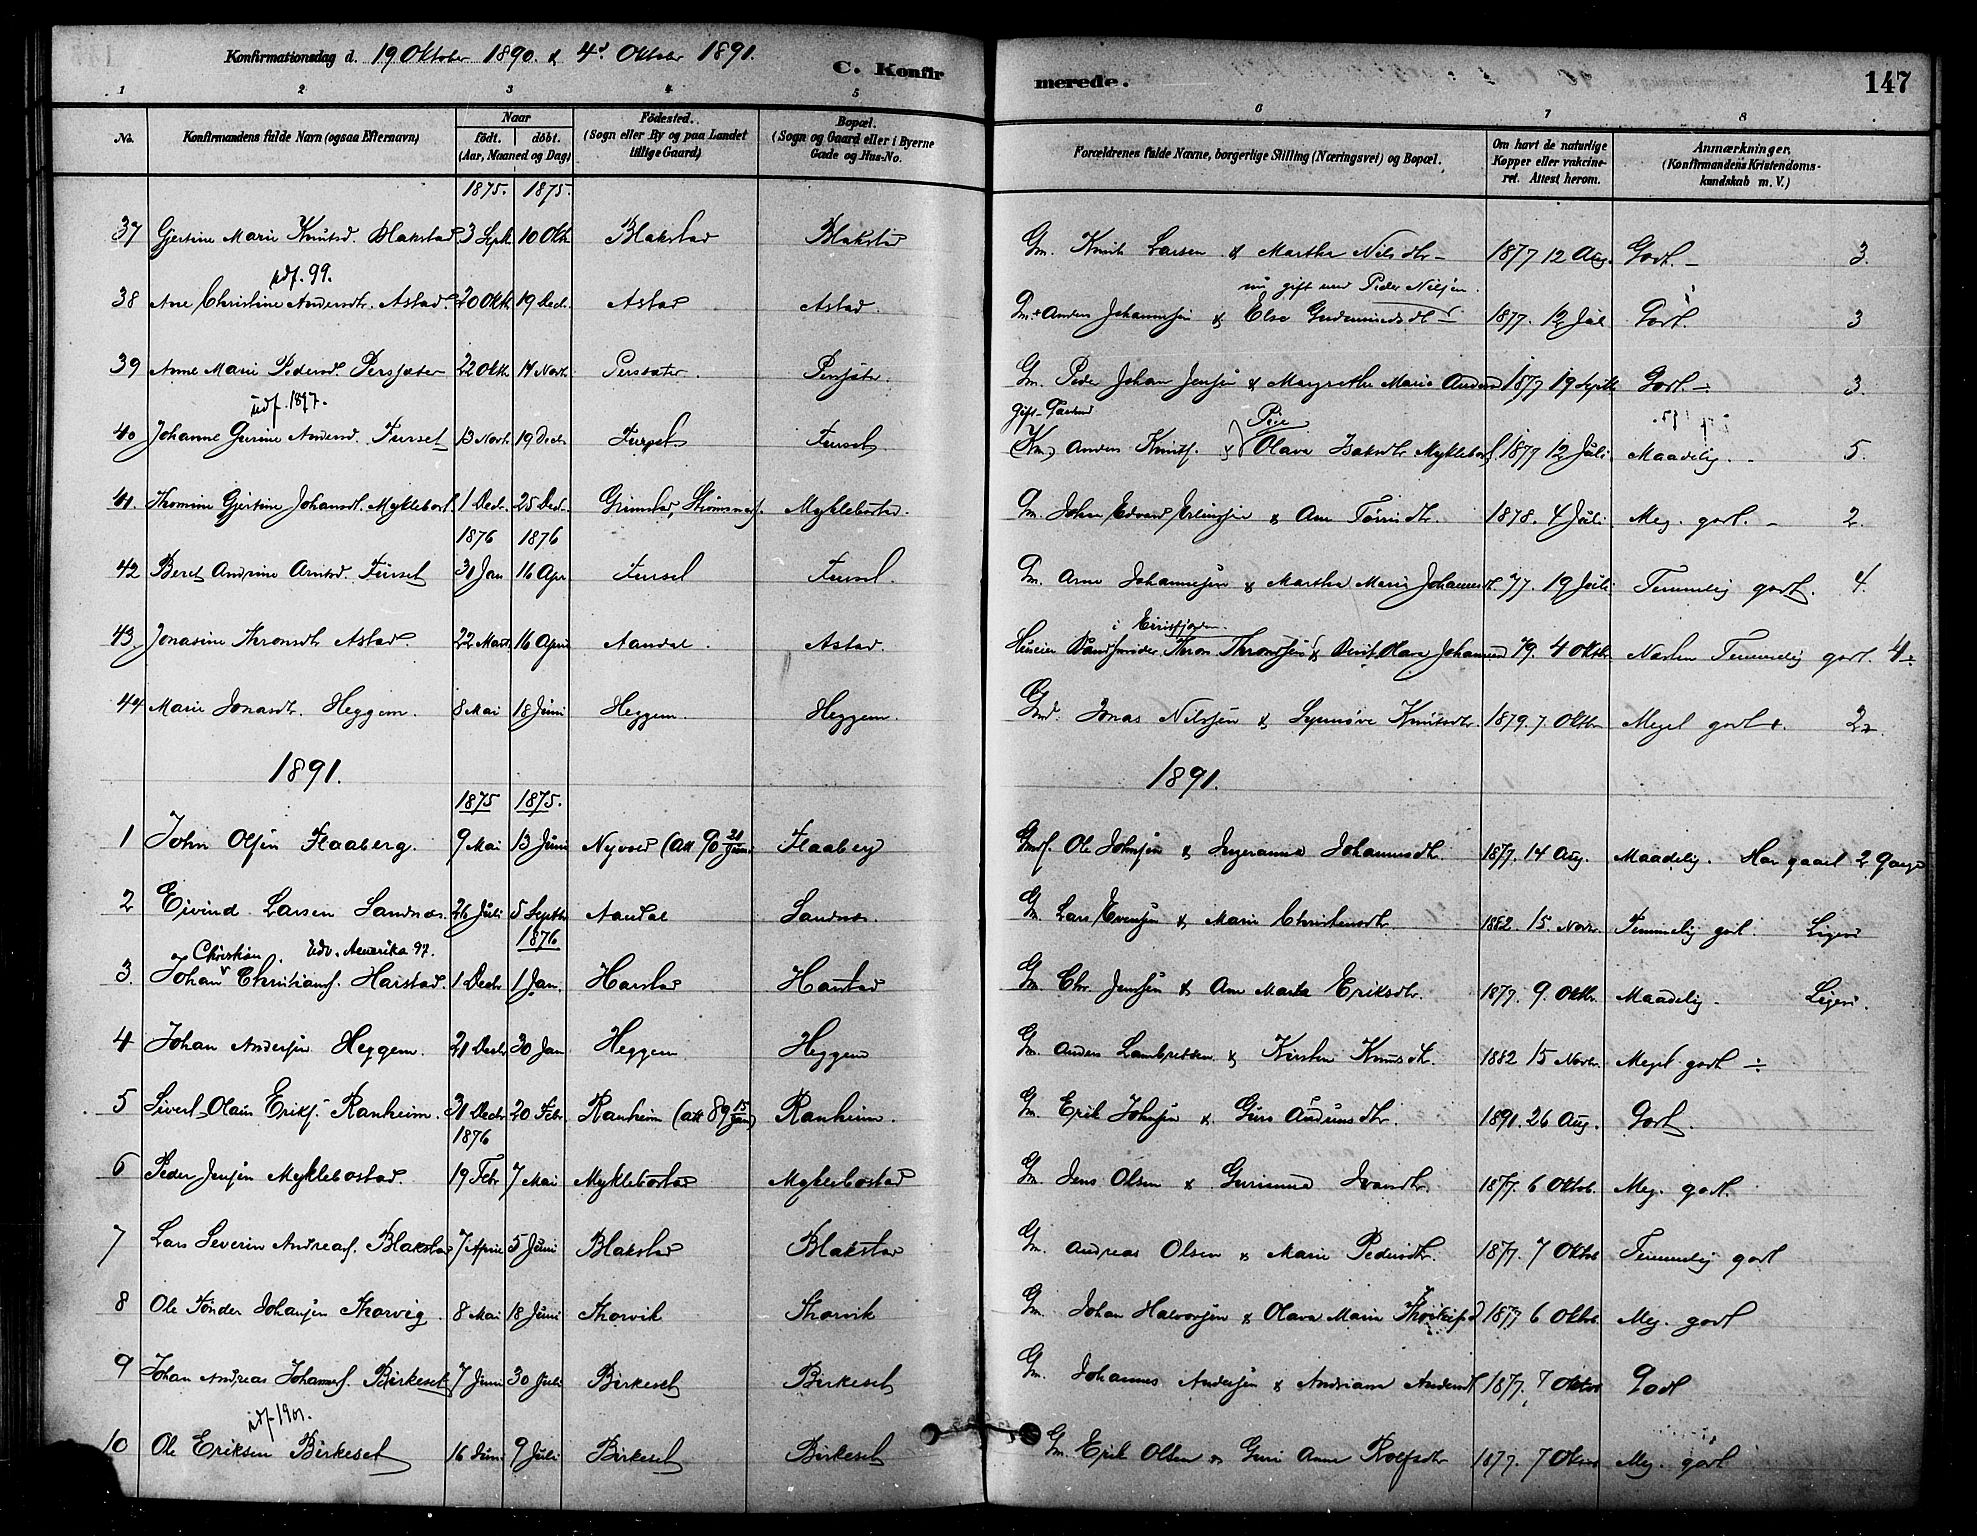 Konfirmationsdag d. 19 Oktober 1890. & 4d Oktober 1891. C. Konfirmerede. 147
1 2 3 4 5 6 7 8
No. Konfirmandens fulde Navn (ogsaa Efternavn) Naar født. døbt. (Aar, Maaned og Dag) Fødested. (Sogn eller By og paa Landet tillige Gaard) Bopæl. (Sogn og Gaard eller i Byerne Gade og Hus-No. Forældrenes fulde Navne, borgerlige Stilling (Næringsvei) og Bopæl. Om havt de naturlige Kopper eller vakcineret. Attest herom. Anmærkninger, (Konfirmandens Kristendomskundskab m. V.)
1875. 1875.
37 Gjertine Marie Knutsd. Blakstad 3 Sept 10 Okt Blakstad Blakstad Gm. Knut Larsen & Martha Nilsdtr. 1877 12 Aug. Godt. 3.
udf. 99. nu gift med Peder Nilsen.
38 Ane Christine Andersdtr. Astad. 20 Okt 19 Dec. Astad Astad. Gm. Anders Johannesen & Else Gudmundsdtr 1877. 12 Juli Godt. 3
39 Anne Marie Pedersd. Persæter 22 Okt 14 Novb. Persæter. Persæter. Gm. Peder Johan Jensen & Margrethe Marie Andersd 1877 19 Septb Godt. 3.
udf. 1897. Gift Pige
40 Johanne Gurine Andersd. Furset 13 Novb. 19 Decb. Furset Furset Km. Anders Knuts. & Olava Isaksdtr Myklebost. 1877 12 Juli. Maadelig. 5.
41. Thomine Gjertine Johansdt. Myklebost. 1 Decb. 25 Dec. Grimstad, Strømsnes. Myklebostad. Gm. Johan Edvard Erlingsen & Ane Tørrisdtr. 1878. 4 Juli. Meg. godt. 2.
1876 1876
42 Beret Andrine Arnesd. Furset 31 Jan 16 Apr Furset Furset. Gm. Arne Johannesen & Martha Marie Johannesdt. 77. 19 Juli. Temmelig godt. 4.
i Eirisfjorden
43. Jonasine Thronsdtr Astad. 22 Marts 16 April Aandal. Astad. Husmer Thron Throndsen & Olava Johansd 79. 4 Oktbr Næsten Temmelig godt. 4
44 Marie Jonasdtr. Heggem. 8 Mai 18 Juni Heggem. Heggem. Gmd. Jonas Nilssen & Synnøve Knutsdtr. 1879. 7 Oktbr Meget godt. 2
1891. 1891.
1875 1875.
1 John Olsen Flaaberg. 9 Mai 13 Juni Nyvold (att 90 21/Juni) Flaaberg Gmd. Ole Johnsen & Ingeranna Johannesdtr. 1877. 14 Aug. Maadelig. Har gaaet 2 Gange
2 Eivind Larsen Sandnes. 26 Juli 5 Septb Aandal Sandnes. Gm. Lars Evensen & Marie Christensdtr 1882. 15 Novbr. Temmelig godt. Ligesaa
Christian. Udv. Amerika 97. 1876
3. Johan Christians. Harstad. 1 Decb 1 Jan. Harstad Harstad Gm Chr. Jensen & Ane Marta Eriksdtr. 1879. 9. Oktbr. Maadelig. Ligesaa
4 Johan Andersen Heggem. 21 Decb 30 Jan Heggem Heggem Gm. Anders Lambretsen & Kirsten Knutsdtr. 1882 15 Novbr. Meget godt
5 Sivert Olaus Eriks. Ranheim. 31 Decb 20 Febr. Ranheim (att 89 15/Jan) Ranheim. Gm. Erik Johnsen & Guri Gudmunsdtr. 1891. 26 Aug. Godt.
1876
6 Peder Jensen Myklebostad. 19 Febr 7 Mai Myklebostad Myklebostad Gm Jens Olsen & Gurianna Ivarsdtr. 1877. 6 Oktob. Meg. godt.
7 Lars Severin Andreas. Blakstad 7 April 5 Juni Blakstad Blakstad Gm. Andreas Olsen & Marie Pedersdtr. 1877. 7 Oktob Temmelig godt
8 Ole Tønder Johansen Thorvig. 8 Mai 18 Juni Thorvik Thorvik Gm. Johan Halvorsen & Olava Marie 1877 6 Oktob. Meg. godt
9 Johan Andreas Johannes. Birkeset 7 Juni 30 Juli Birkeset Birkeset Gm. Johannes Andersen & Andrianna Andersdt 1877. 7 Oktob Godt
udf. 1901.
10 Ole Eriksen Birkeset 16 Juni 9 Juli Birkeset Birkeset Gm. Erik Olsen & Guri Anne Rolfsdtr 1877. 7 Oktob Meg. godt